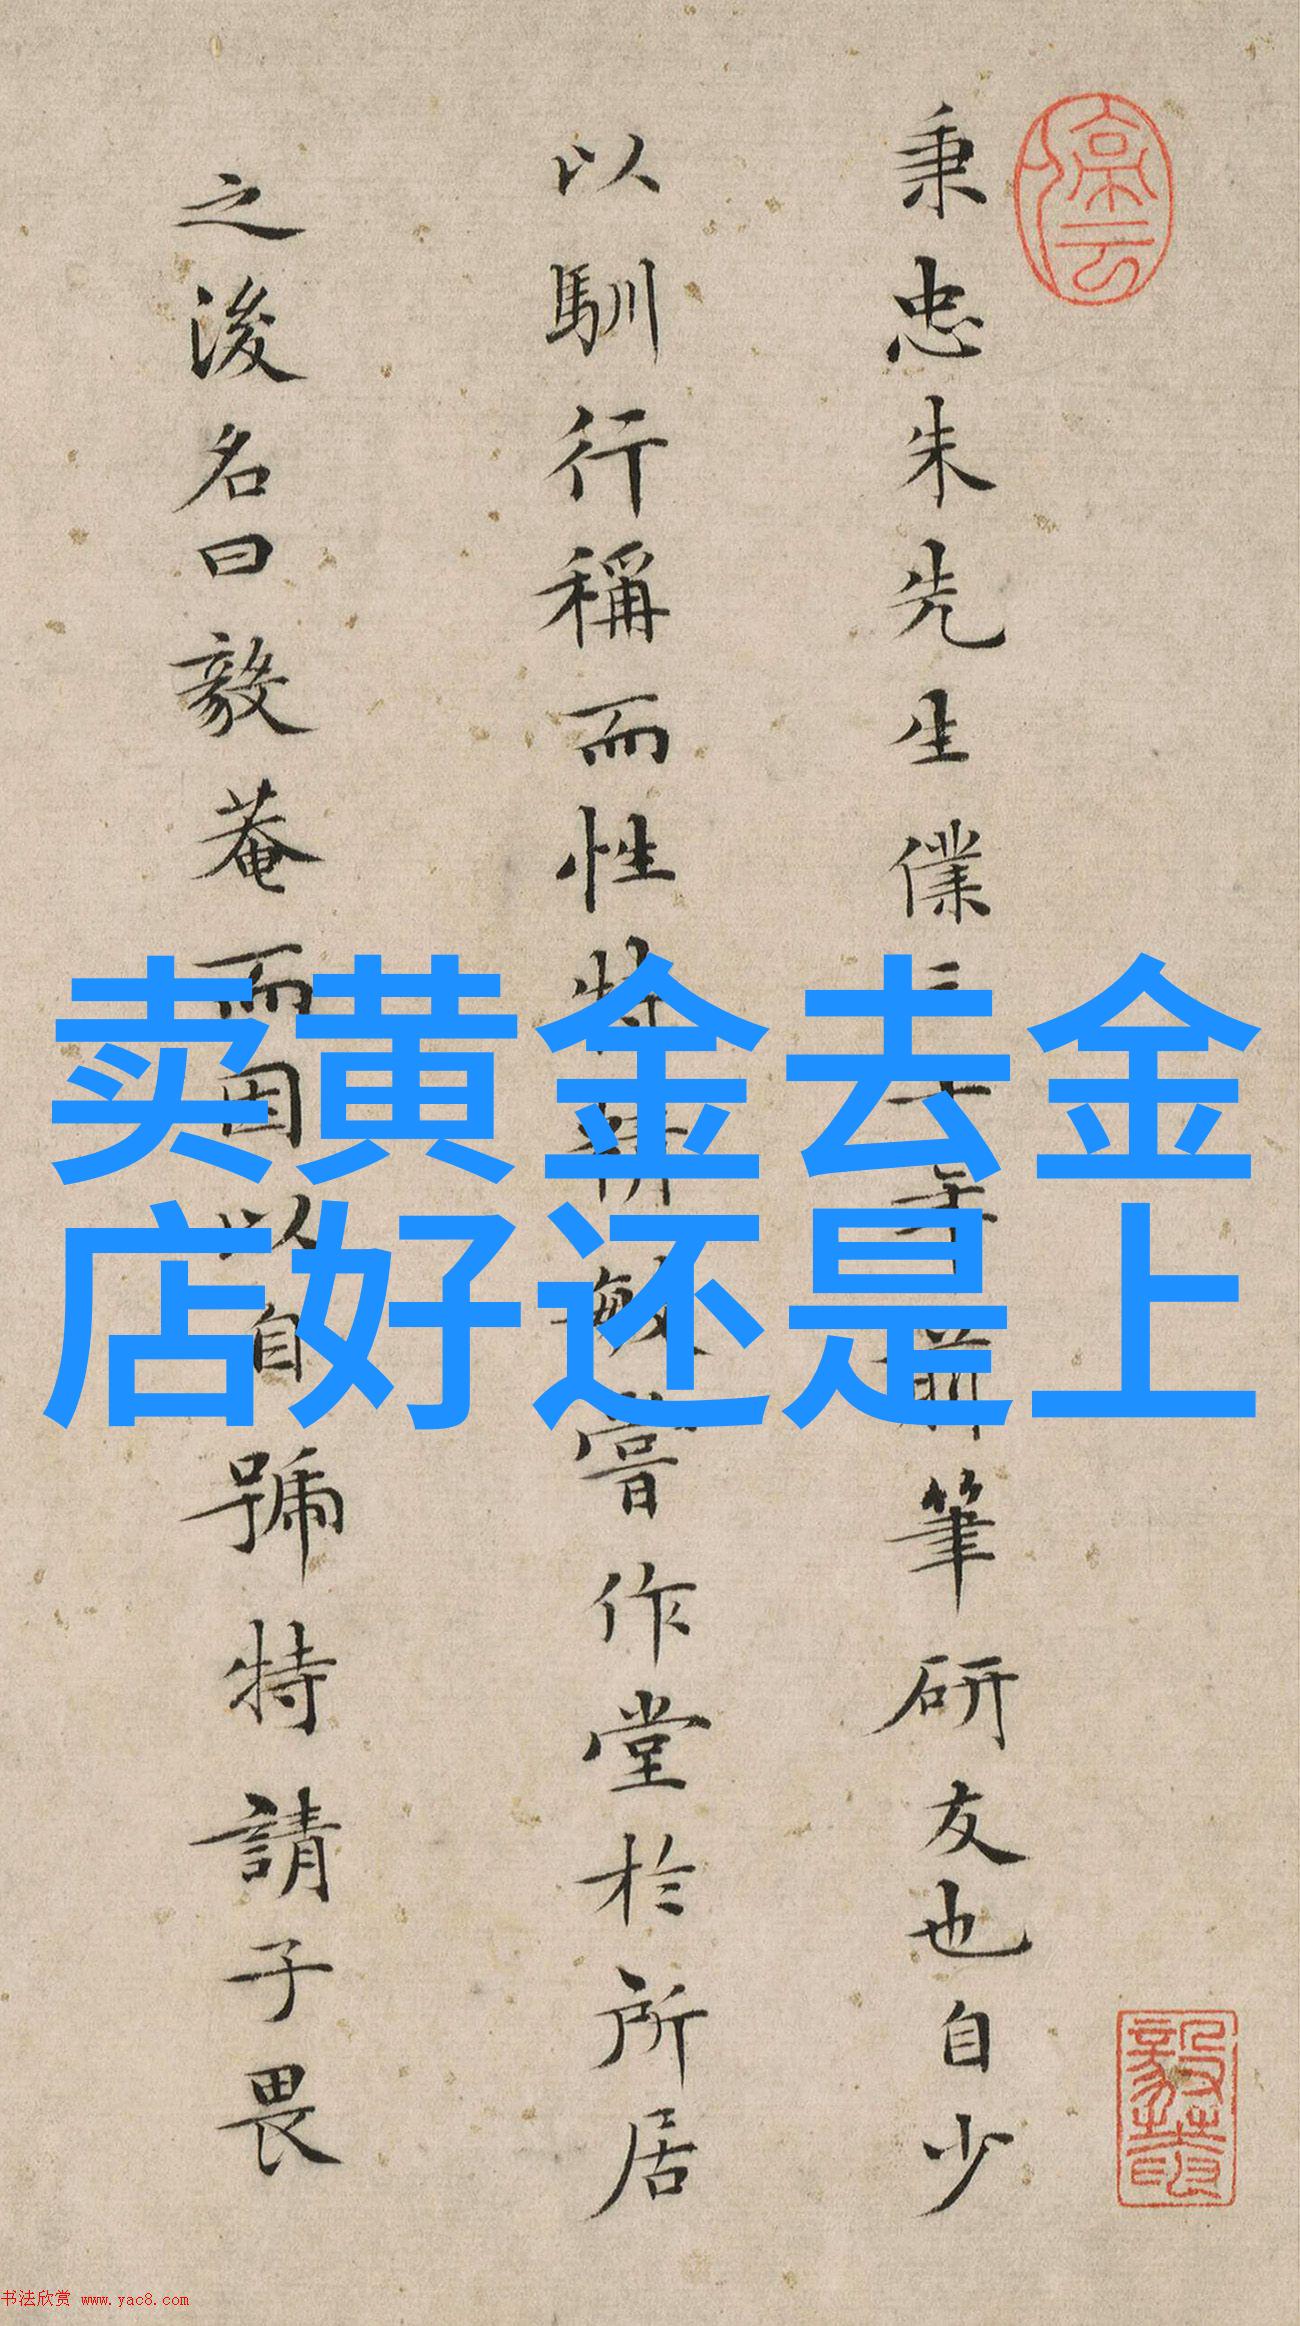 秉忠朱先生僕三十年前筆研友也自少
以馴行稱而性特精敏嘗作堂於所居
之後名曰毅菴而因以自號特請予畏
卖黄金去金
店好还是上
书法欣赏 www.yac8.com